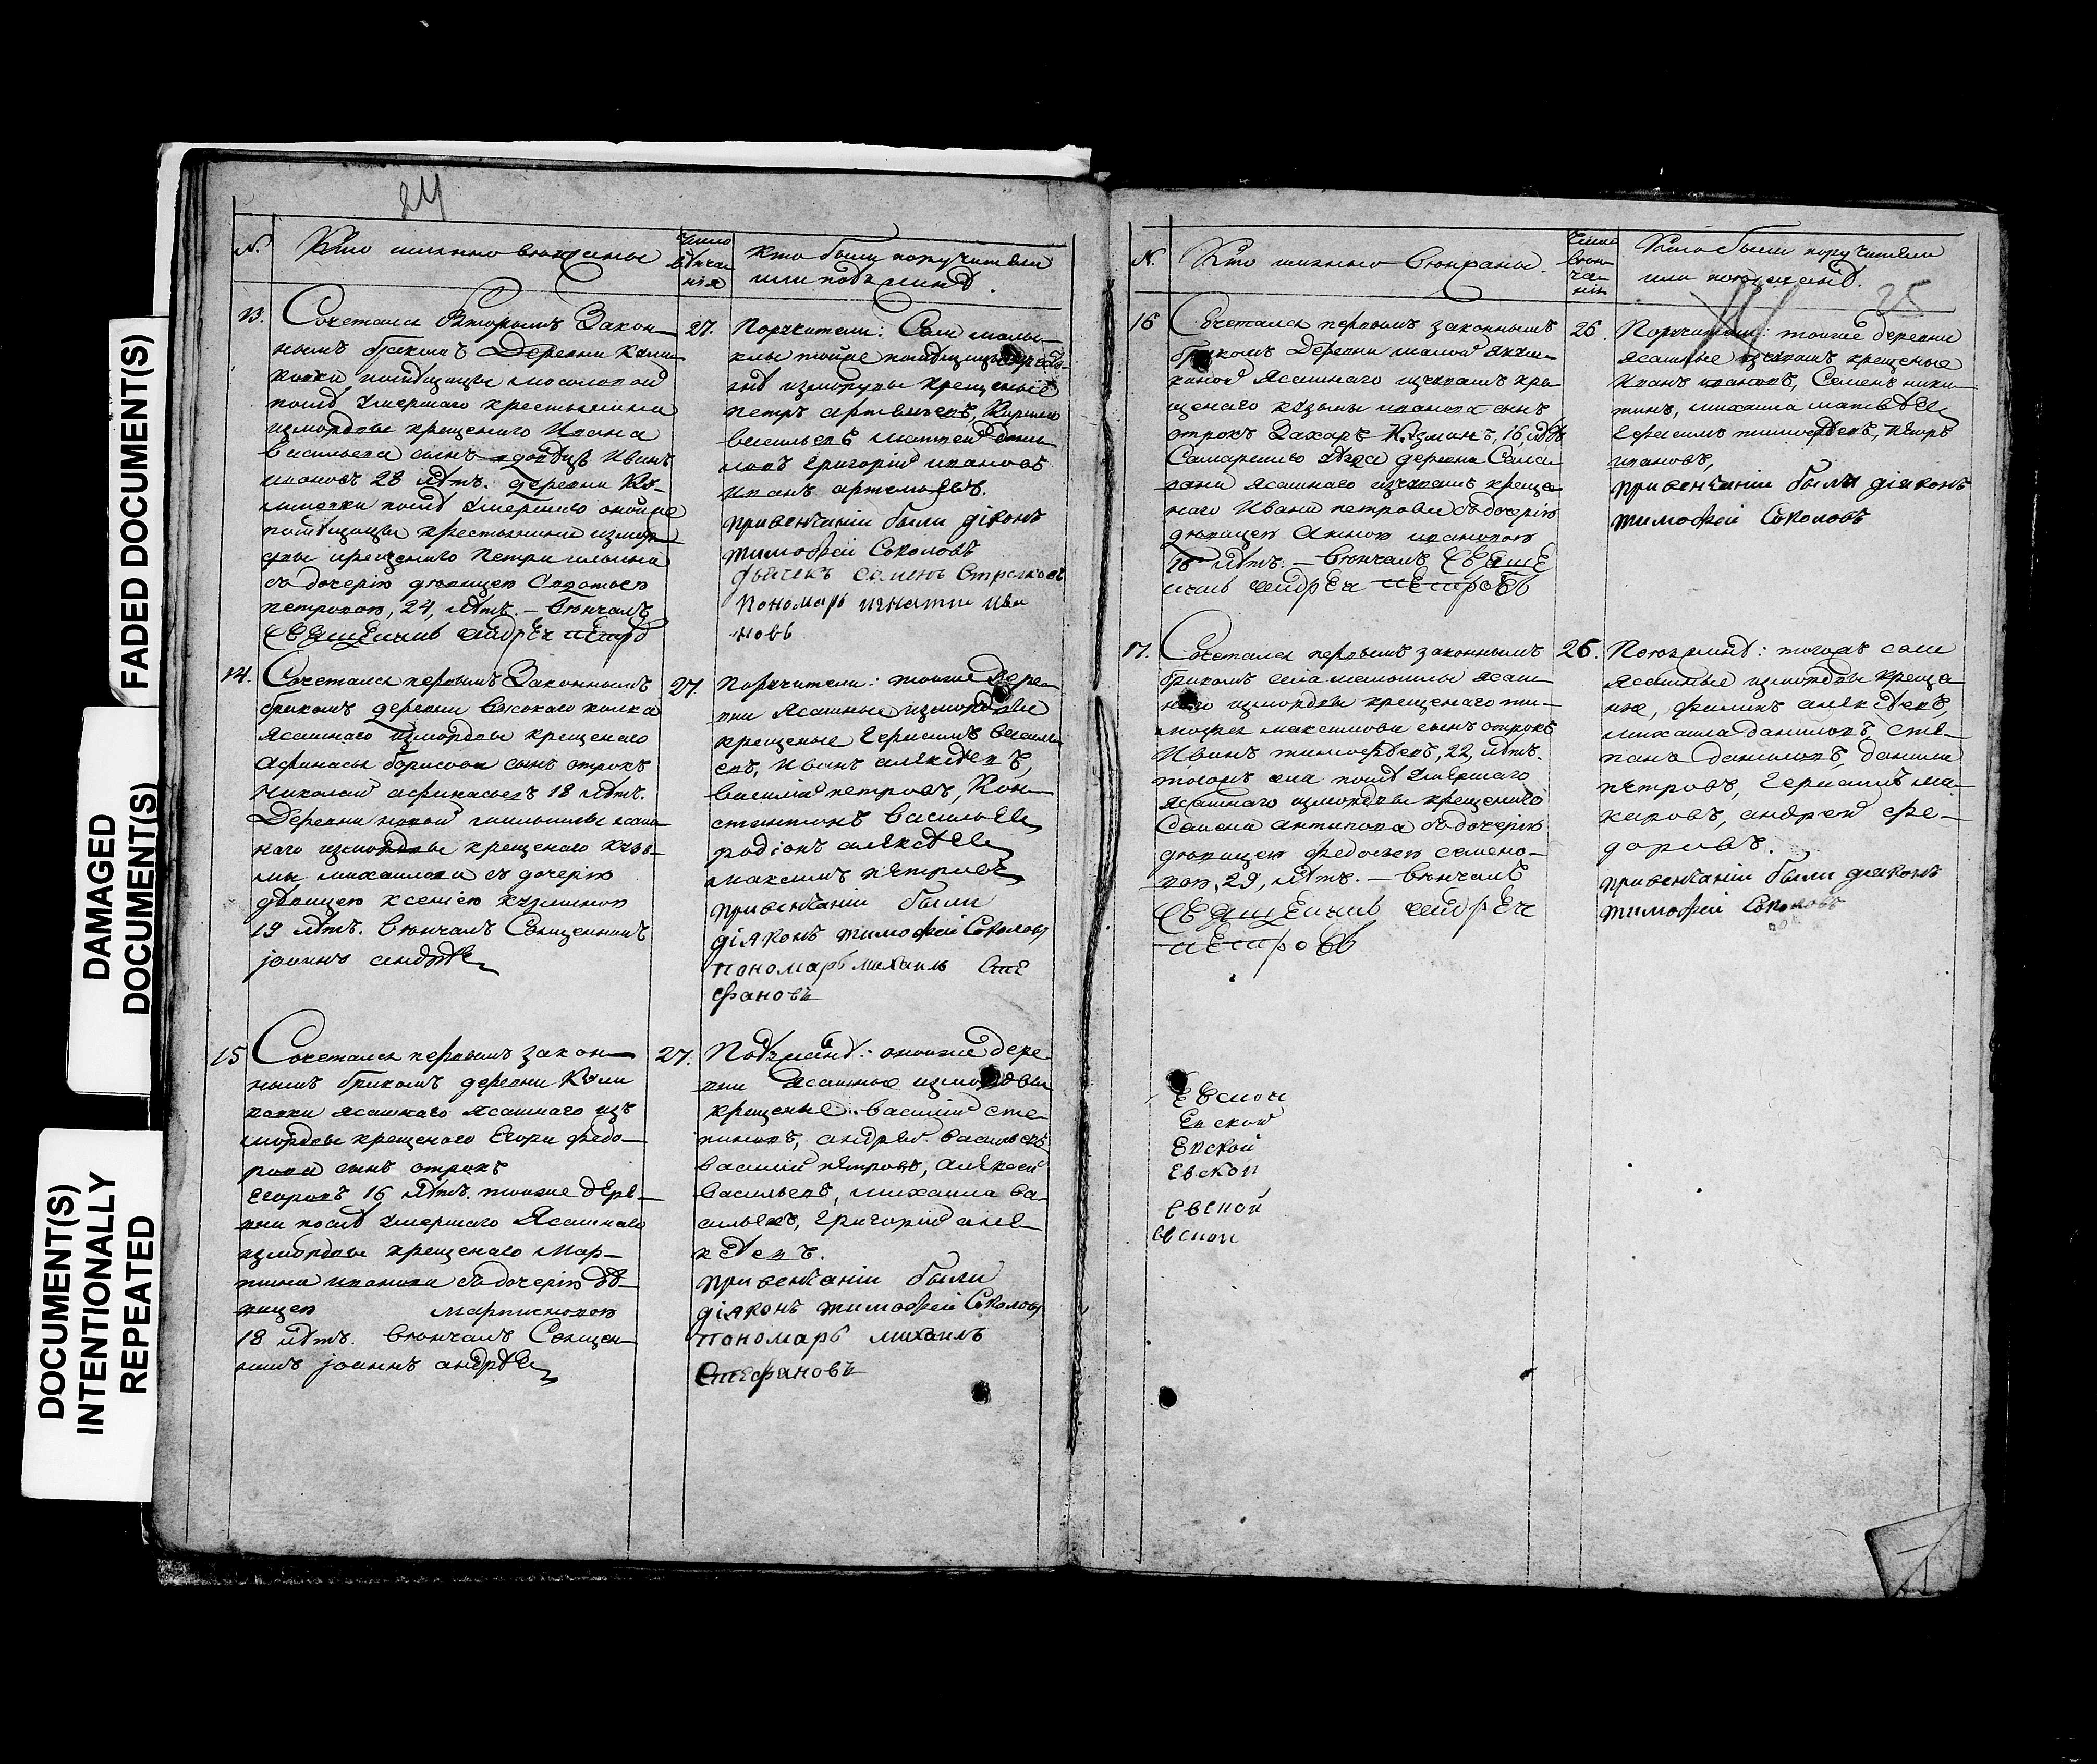 FADED DOCUMENT(S)
DAMAGED
DOCUMENT(S)
DOCUMENT(S)
INTENTIONALLY
REPEATED
24
N.
Кто имянно венчаны
Число
венча
нiя
кто были поручители
или поѣзжанѣ.
13.
Сочетался вторымъ Закон
нымъ бракомъ Деревни Кали
новки помѣщицы
послѣ умершаго крестьянина
измордвы крещенаго Ивана
Васильева сынъ вдовецъ Иванъ
ивановъ 28 лѣтъ. деревни Ка
линовки послѣ умершаго оной же
помѣщицы крестьянина измор
двы крещенаго Петра ильина
съ дочерiю девицею
петровою, 24, лѣтъ. — Венчалъ
священникъ андрей петро
27.
Поручители: Села
клы тойже помѣщицы
измордвы крещеные
петръ артемьевъ, Кирила
васильевъ матвей дани
ловъ григорiй ивановъ
иванъ артемьевъ.
привенчанiи были дiяконъ
тимофей Соколовъ
дьячекъ семенъ Стрелковъ
пономарь игнатiи ива
новъ
14.
Сочетался первымъ Законнымъ
бракомъ деревни высокаго колка
ясашнаго измордвы крещенаго
афинасья борисова сынъ отрокъ
николай афинасьевъ 18 лѣтъ.
Деревни новой ясаш
наго измордвы крещенаго кузь
мы михаилова съ дочерiю
дѣвицею ксенiею кузминою
19 лѣтъ. венчалъ Священникъ
iоаннъ андрѣев
27.
Поручители: тоиже дере
вни ясашные измордвы
крещеные герасимъ василь
евъ, иванъ алексѣевъ,
василiй петровъ, Кон
стентинъ василье
родiонъ алексѣе
максимъ петровъ
привенчанiи были
дiяконъ тимофей Соколовъ
пономарь михаилъ Сте
фановъ
15
Сочетался первымъ закон
нымъ бракомъ деревни Кали
новки ясашнаго ясашнаго изъ
мордвы крещенаго Егора федо
рова сынъ отрокъ
Егоровъ 16 лѣтъ. тоиже дере
вни послѣ умершаго Ясашнаго
измордвы крещенаго Мар
тина иванова съ дочерiю дѣ
вицею мартиновою
18 лѣтъ. венчалъ Священ
никъ iоаннъ андрѣе
27.
Поѣзжанѣ: оноиже дере
вни ясашные измордвы
крещеные василiй сте
пановъ, андрей васильевъ
василiй петровъ, алексей
васильевъ, михаила ва
сильевъ, григорiй алек
сѣевъ.
привенчанiи были
дiяконъ тимофей Соколовъ
пономарь михаилъ
Стефановъ
N.
Кто имянно венчаны.
Число
вен
ча
нiя
Кто были поручители
или поезжанѣ.
25
16
Сочетался первымъ законнымъ
бракомъ деревни малой
ясашнаго изчувашъ кре
щенаго кузьмы иванова сынъ
отрокъ Захаръ Кузминъ, 16, лѣтъ
Самарскаго уѣзда деревни
ясашнаго изчувашъ креще
наго Ивана петрова съ дочерiю
девицею Анною ивановою
18 лѣтъ. — венчалъ свяще
никъ андрей петровъ
26.
Поручители: тоиже деревни
ясашные изчувашъ крещеные
иванъ ивановъ, Семенъ ники
тинъ, михаила матвѣе
герасимъ тимофѣевъ, петръ
ивановъ,
привенчанiи былъ дiяконъ
тимофей Соколовъ
17.
Сочетался первымъ законнымъ
бракомъ села ясаш
наго измордвы крещенаго ти
мофея максимова сынъ отрокъ
Иванъ тимофѣевъ, 22, лѣтъ.
тогожъ села послѣ умершаго
ясашнаго измордвы крещенаго
Семена антипова съ дочерiю
девицею федосьею семено
вою, 29, лѣтъ. — венчалъ
священникъ андрей
петровъ
26.
Поезжанѣ: тогожъ села
ясашные измордвы креще
ные, филипъ алексѣевъ,
михаила даниловъ, сте
панъ даниловъ, данила
петровъ, герасимъ ма
каровъ, андрей фе
доровъ.
привенчанiи были дiяконъ
тимофей Соколовъ
Евской
Евской
Евской
Евской
евской